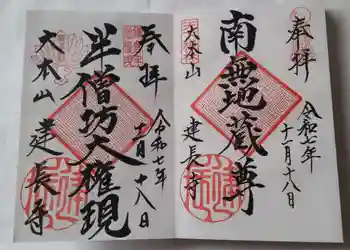 奉拝
南無地蔵尊
令和七年
十一月十八日
大本山
建長寺
奉拝
半僧坊大権現
令和七年
十一月十八日
大本山
建長寺